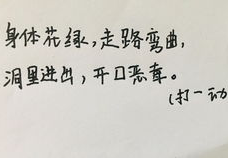 身体花绿,走路弯曲,
洞里进出,开口恶毒。
(打一动